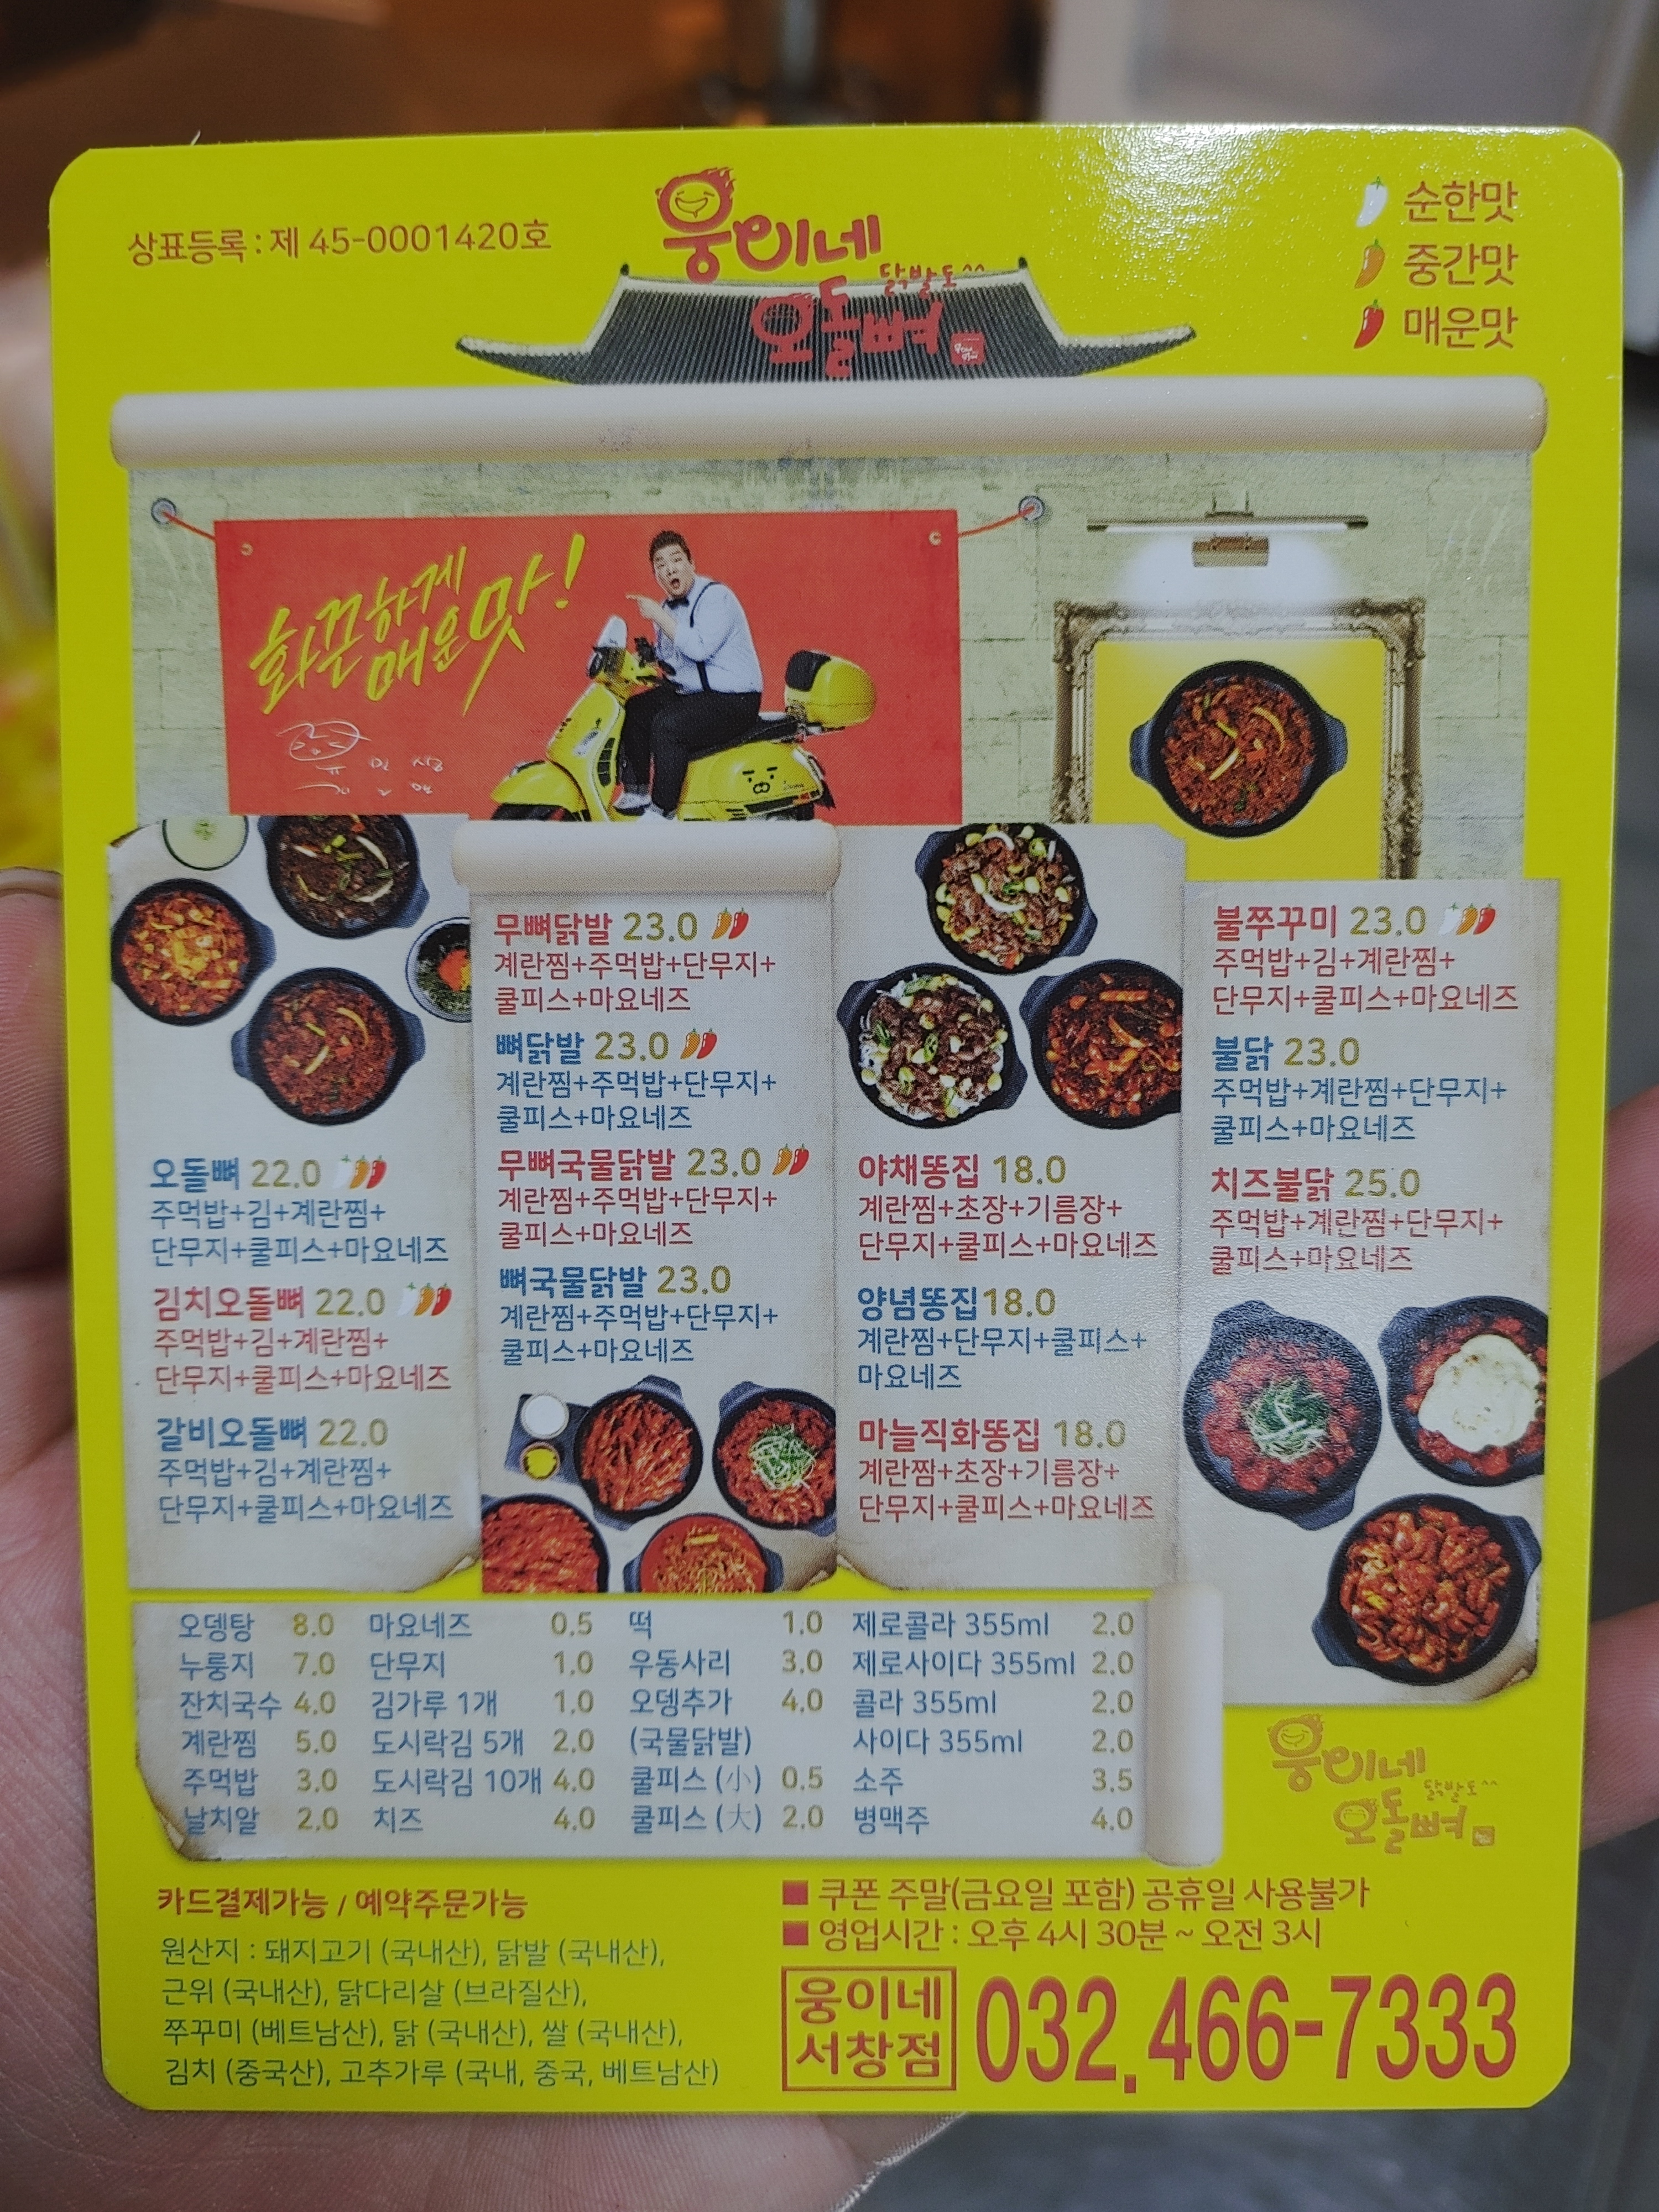 상표등록 : 제 45-0001420호
웅이네
닭발도^^
오돌뼈
순한맛
중간맛
매운맛
화끈하게
매운맛!
오돌뼈 22.0
주먹밥+김+계란찜+
단무지+쿨피스+마요네즈
김치오돌뼈 22.0
주먹밥+김+계란찜+
단무지+쿨피스+마요네즈
갈비오돌뼈 22.0
주먹밥+김+계란찜+
단무지+쿨피스+마요네즈
무뼈닭발 23.0
계란찜+주먹밥+단무지+
쿨피스+마요네즈
뼈닭발 23.0
계란찜+주먹밥+단무지+
쿨피스+마요네즈
무뼈국물닭발 23.0
계란찜+주먹밥+단무지+
쿨피스+마요네즈
뼈국물닭발 23.0
계란찜+주먹밥+단무지+
쿨피스+마요네즈
야채똥집 18.0
계란찜+초장+기름장+
단무지+쿨피스+마요네즈
양념똥집18.0
계란찜+단무지+쿨피스+
마요네즈
마늘직화똥집 18.0
계란찜+초장+기름장+
단무지+쿨피스+마요네즈
불쭈꾸미 23.0
주먹밥+김+계란찜+
단무지+쿨피스+마요네즈
불닭 23.0
주먹밥+계란찜+단무지+
쿨피스+마요네즈
치즈불닭 25.0
주먹밥+계란찜+단무지+
쿨피스+마요네즈
오뎅탕 8.0 마요네즈 0.5 떡 1.0 제로콜라 355ml 2.0
누룽지 7.0 단무지 1.0 우동사리 3.0 제로사이다 355ml 2.0
잔치국수 4.0 김가루 1개 1.0 오뎅추가 4.0 콜라 355ml 2.0
계란찜 5.0 도시락김 5개 2.0 (국물닭발) 사이다 355ml 2.0
주먹밥 3.0 도시락김 10개 4.0 쿨피스 (小) 0.5 소주 3.5
날치알 2.0 치즈 4.0 쿨피스 (大) 2.0 병맥주 4.0
웅이네
닭발도^^
오돌뼈
카드결제가능 / 예약주문가능
원산지 : 돼지고기 (국내산), 닭발 (국내산),
근위 (국내산), 닭다리살 (브라질산),
쭈꾸미 (베트남산), 닭 (국내산), 쌀 (국내산),
김치 (중국산), 고추가루 (국내, 중국, 베트남산)
■ 쿠폰 주말(금요일 포함) 공휴일 사용불가
■ 영업시간 : 오후 4시 30분 ~ 오전 3시
웅이네
서창점
032.466-7333